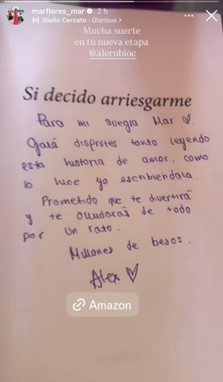 marflores_mar 2 h
Giulio Cercato - Glorious >
Mucha suerte
en tu nueva etapa
@alerubioc
Si decido arriesgarme
Para mi suegra Mar ♡.
Ojalá disfrutes tanto leyendo
esta historia de amor, como
lo hice yo escribiéndola.
Prometido que te divertirá
y te olvidarás de todo
por un rato.
Millones de besos.
Alex ♡
Amazon